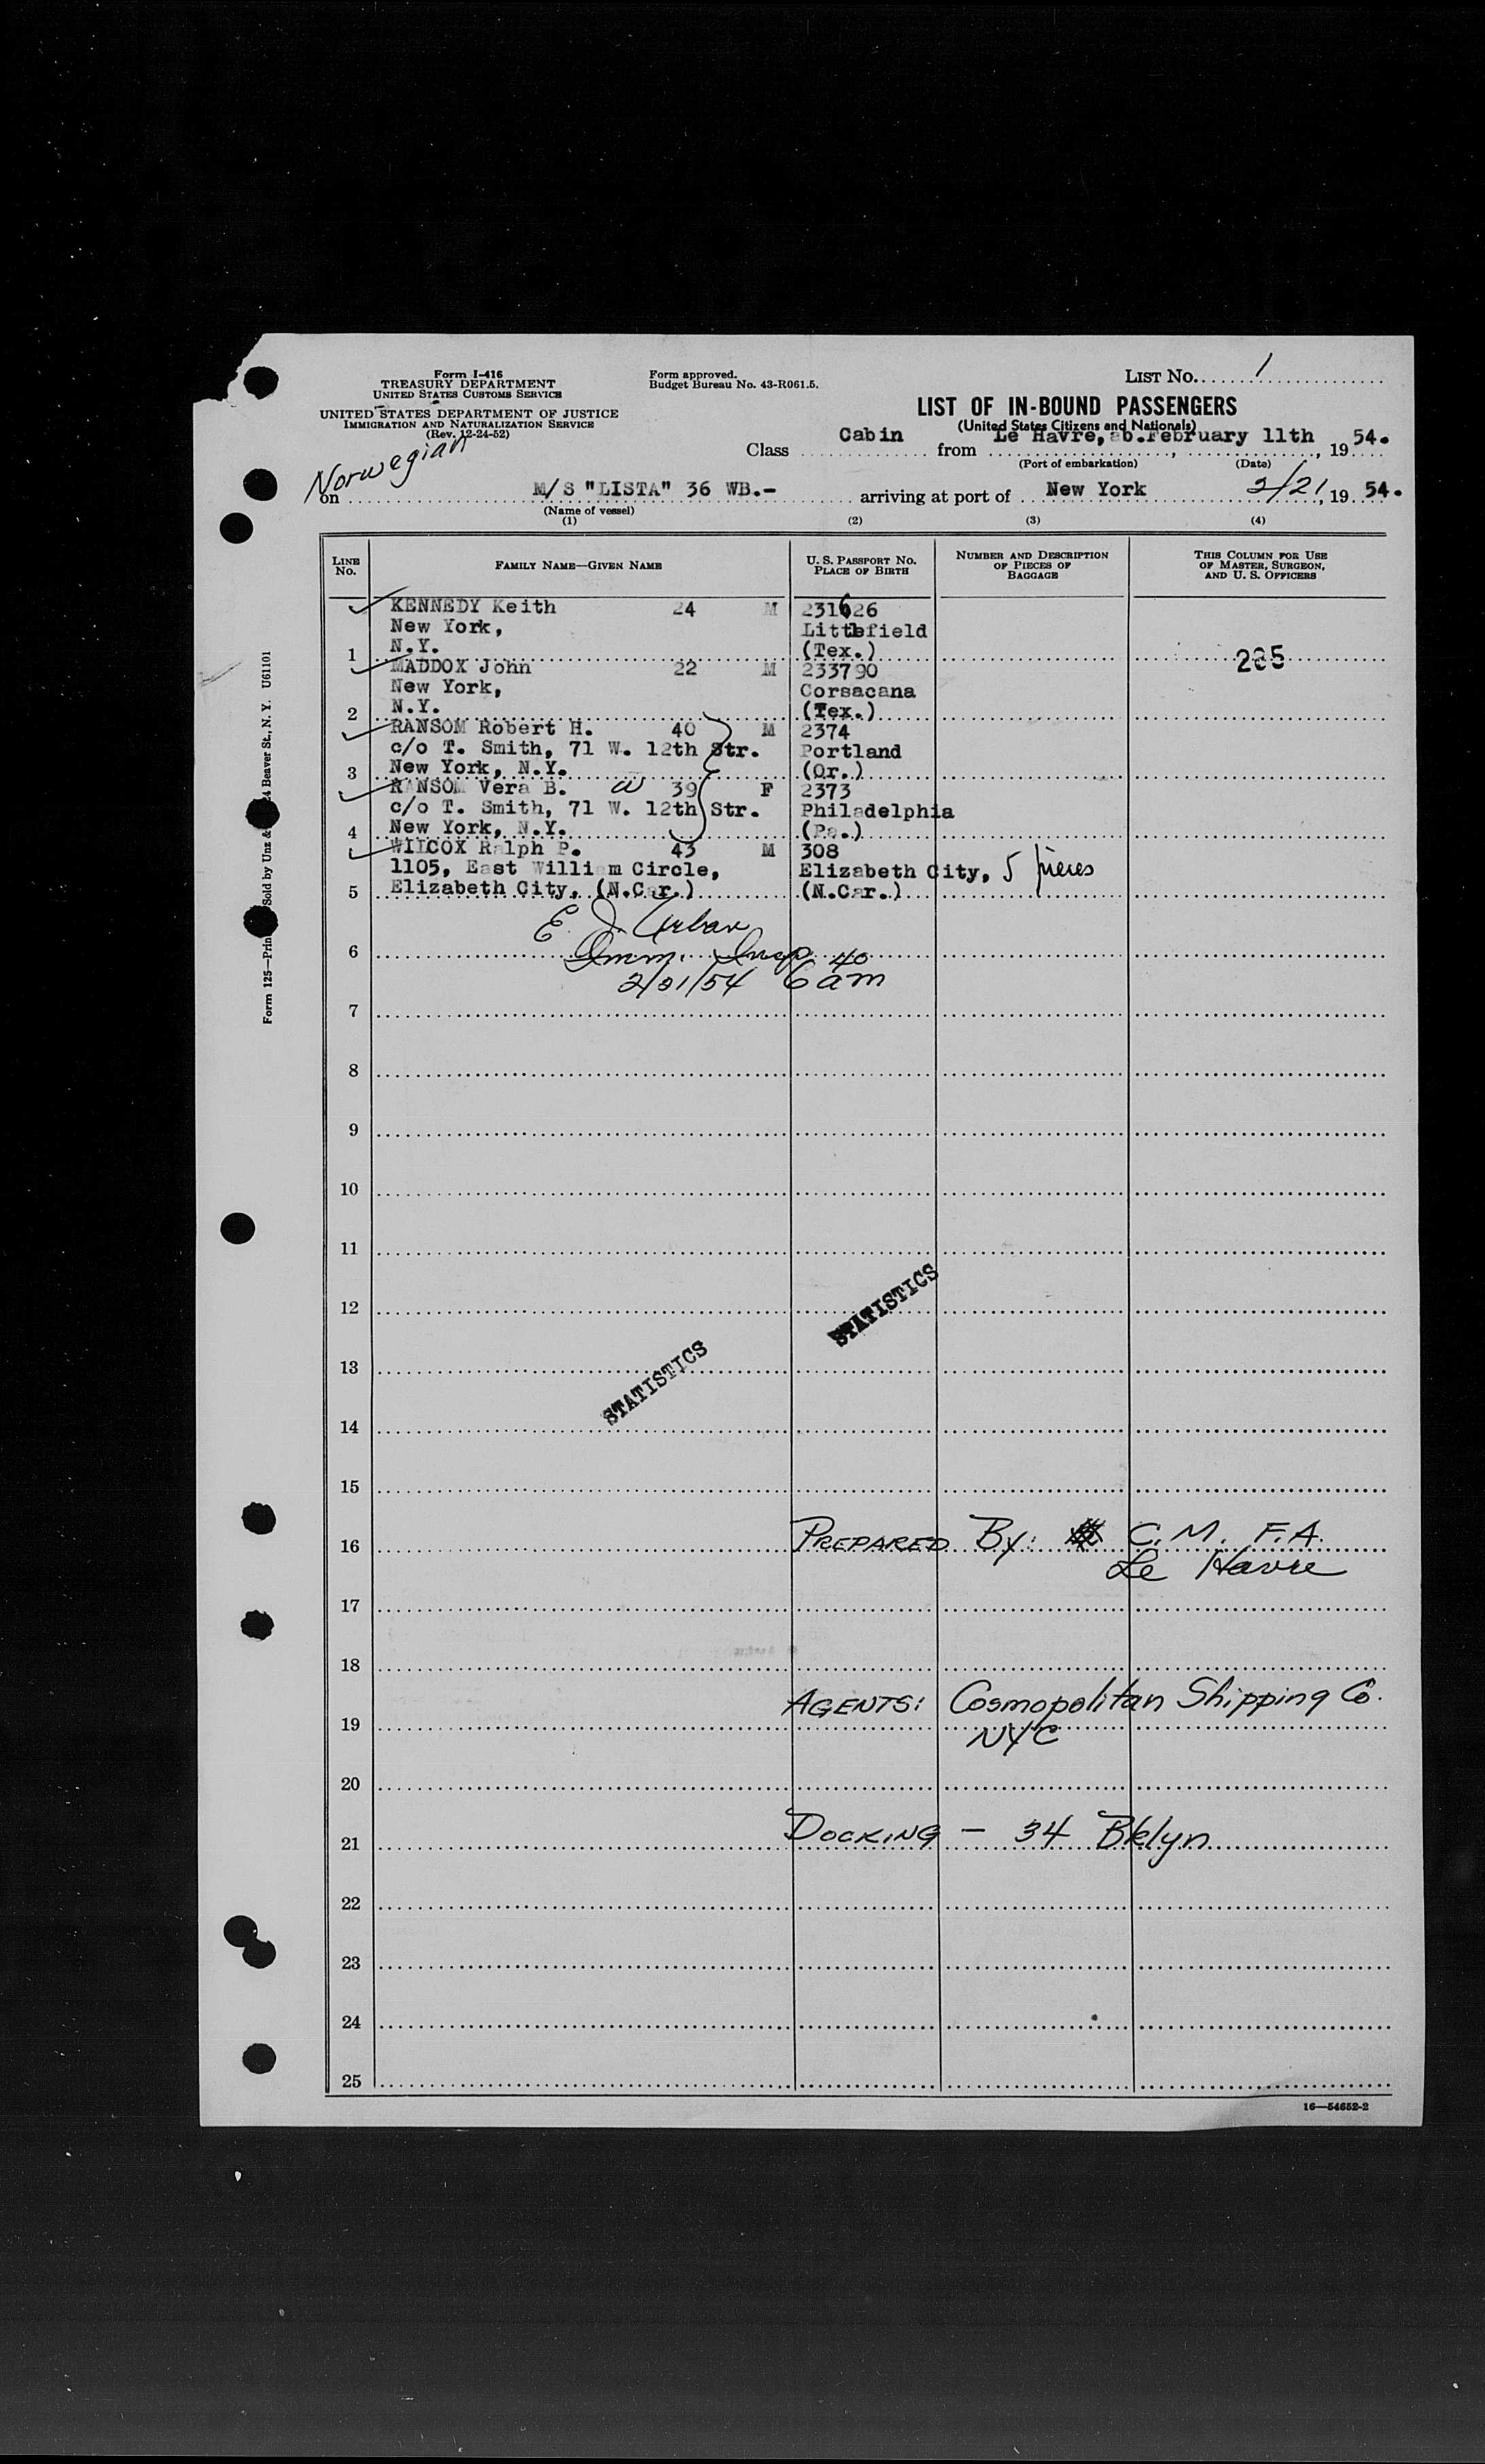 Form I-416
TREASURY DEPARTMENT
UNITED STATES CUSTOMS SERVICE
UNITED STATES DEPARTMENT OF JUSTICE
IMMIGRATION AND NATURALIZATION SERVICE
(Rev. 12-24-52)
Form approved.
Budget Bureau No. 43-R061.5.
LIST NO. 1
LIST OF IN-BOUND PASSENGERS
(United States Citizens and Nationals)
Class Cabin from Le Havre, ab. February 11th, 1954.
(Port of embarkation) (Date)
Norwegian
on M/S "LISTA" 36 WB.- arriving at port of New York 2/21, 1954.
(Name of vessel)
(1) (2) (3) (4)
LINE NO.
FAMILY NAME—GIVEN NAME
U. S. PASSPORT NO.
PLACE OF BIRTH
NUMBER AND DESCRIPTION
OF PIECES OF
BAGGAGE
THIS COLUMN FOR USE
OF MASTER, SURGEON,
AND U. S. OFFICERS
KENNEDY Keith 24 M 231626
New York, Littlefield
1 N.Y. (Tex.) 285
MADDOX John 22 M 233790
New York, Corsacana
2 N.Y. (Tex.)
RANSOM Robert H. 40 M 2374
c/o T. Smith, 71 W. 12th Str. Portland
3 New York, N.Y. (Or.)
RANSOM Vera B. W 39 F 2373
c/o T. Smith, 71 W. 12th Str. Philadelphia
4 New York, N.Y. (Pa.)
WILCOX Ralph P. 43 M 308
1105, East William Circle, Elizabeth City, 5 pieces
5 Elizabeth City, (N.Car.) (N.Car.)
E. J. Urban
6 Imm. Insp
2/21/54 6 40 am
7
8
9
10
11
12 STATISTICS
13
STATISTICS
14
15
16 PREPARED BY: C.M. F.A.
Le Havre
17
18
AGENTS: Cosmopolitan Shipping Co.
19
NYC
20
21 DOCKING - 34 Bklyn
22
23
24
25
16—54652-2
Form 125—Prin
Sold by Unz &
24 Beaver St., N. Y. U61101